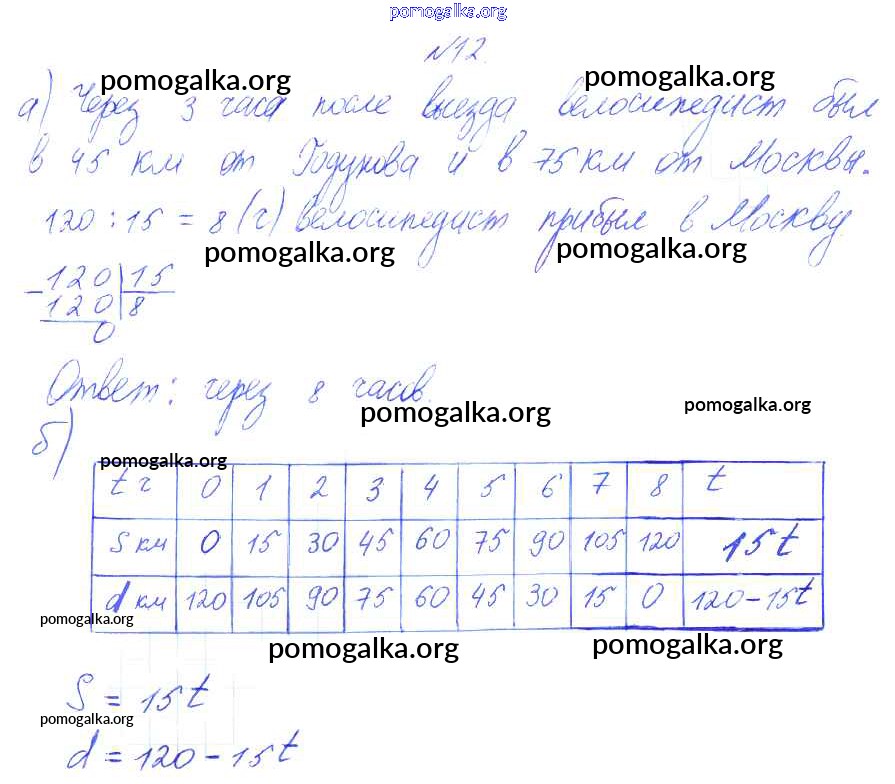 pomogalka.org
№12.
pomogalka.org pomogalka.org
а) Через 3 часа после выезда велосипедист был
в 45 км от Годунова и в 75 км от Москвы.
120 : 15 = 8 (ч) велосипедист прибыл в Москву
pomogalka.org pomogalka.org
- 120 | 15
120 | 8
0
Ответ: через 8 часов.
pomogalka.org pomogalka.org
б)
pomogalka.org
t ч 0 1 2 3 4 5 6 7 8 t
S км 0 15 30 45 60 75 90 105 120 15t
d км 120 105 90 75 60 45 30 15 0 120-15t
pomogalka.org
pomogalka.org pomogalka.org
S = 15t
pomogalka.org
d = 120 - 15t